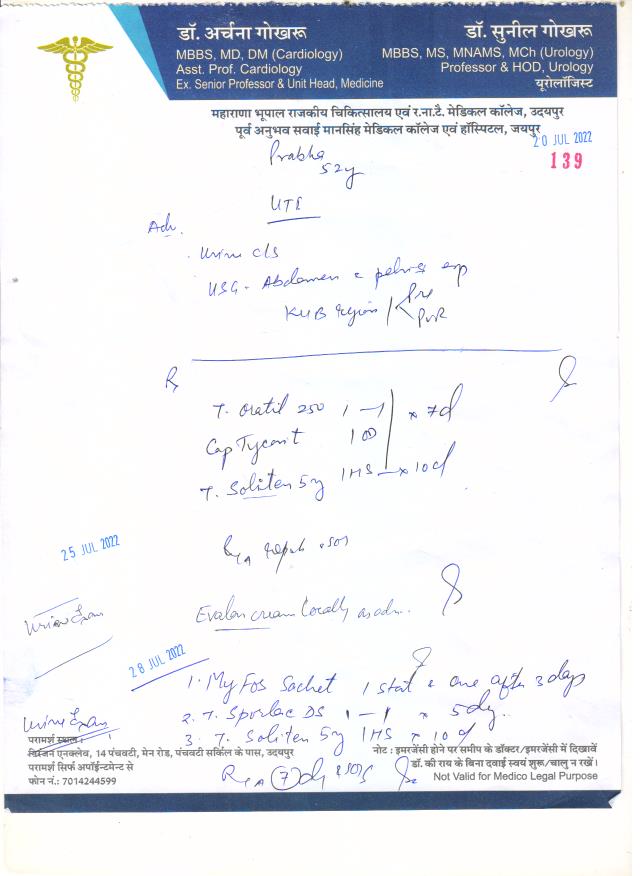 डॉ. अर्चना गोखरू
MBBS, MD, DM (Cardiology)
Asst. Prof. Cardiology
Ex. Senior Professor & Unit Head, Medicine
डॉ. सुनील गोखरू
MBBS, MS, MNAMS, MCh (Urology)
Professor & HOD, Urology
यूरोलॉजिस्ट
महाराणा भूपाल राजकीय चिकित्सालय एवं र.ना.टै. मेडिकल कॉलेज, उदयपुर
पूर्व अनुभव सवाई मानसिंह मेडिकल कॉलेज एवं हॉस्पिटल, जयपुर
20 JUL 2022
139
Prabha
52y
UTI
Adv.
Urine c/s
USG - Abdomen & pelvis
KUB region / Pre
PVR
Rx
T. Oratil 250 1 — 1 x 7d
Cap 1 OD
T. Soliten 5mg 1 HS — x 10d
25 JUL 2022
RA repeat
Urine Exam
Evalon cream locally as adv.
28 JUL 2022
1. My Fos Sachet 1 stat & one after 3 days
Urine Exam
2. T. Sporlac DS 1 — 1 x 5dy.
3. T. Soliten 5mg 1 HS x 10d
RA 7 d
परामर्श स्थल :
चिरंजन एनक्लेव, 14 पंचवटी, मेन रोड, पंचवटी सर्किल के पास, उदयपुर
परामर्श सिर्फ अपॉइंटमेन्ट से
फोन नं.: 7014244599
नोट : इमरजेंसी होने पर समीप के डॉक्टर/इमरजेंसी में दिखावें
डॉ. की राय के बिना दवाई स्वयं शुरू/चालु न रखें।
Not Valid for Medico Legal Purpose